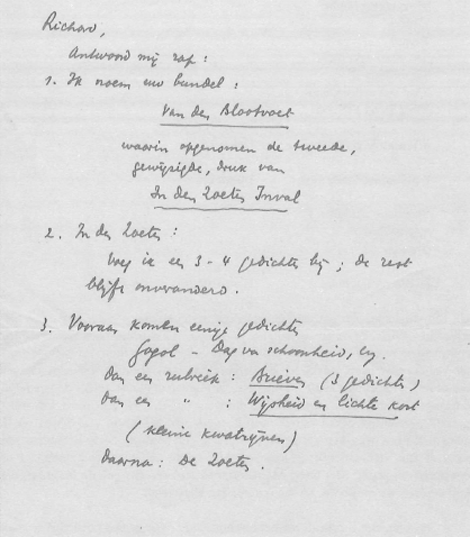 Richard,
Antwoord mij rap :
1. Ik noem uw bundel :
Van den Blootvoet
waarin opgenomen de tweede,
gewijzigde, druk van
In den Zoeten Inval
2. In den Zoeten :
voeg ik er 3 - 4 gedichten bij ; de rest
blijft onveranderd.
3. Vooraan komen enige gedichten
Gogol - Dag van schoonheid,
dan een rubriek : Brieven (3 gedichten)
dan een " : Wijsheid en lichte kost
(kleine kwatrijnen)
daarna : De Zoeten.